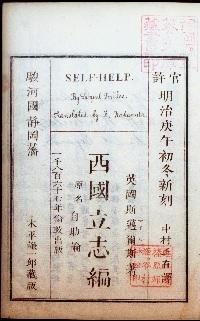 SELF-HELP.
By Samuel Smiles.
Translated by K. Nakamura.
官許
明治庚午初冬新刻
英國斯邁爾斯著
中村
西國立志編
原名自助論
一千八百六十七年倫敦出版
駿河國靜岡藩
木平謙一郎藏版